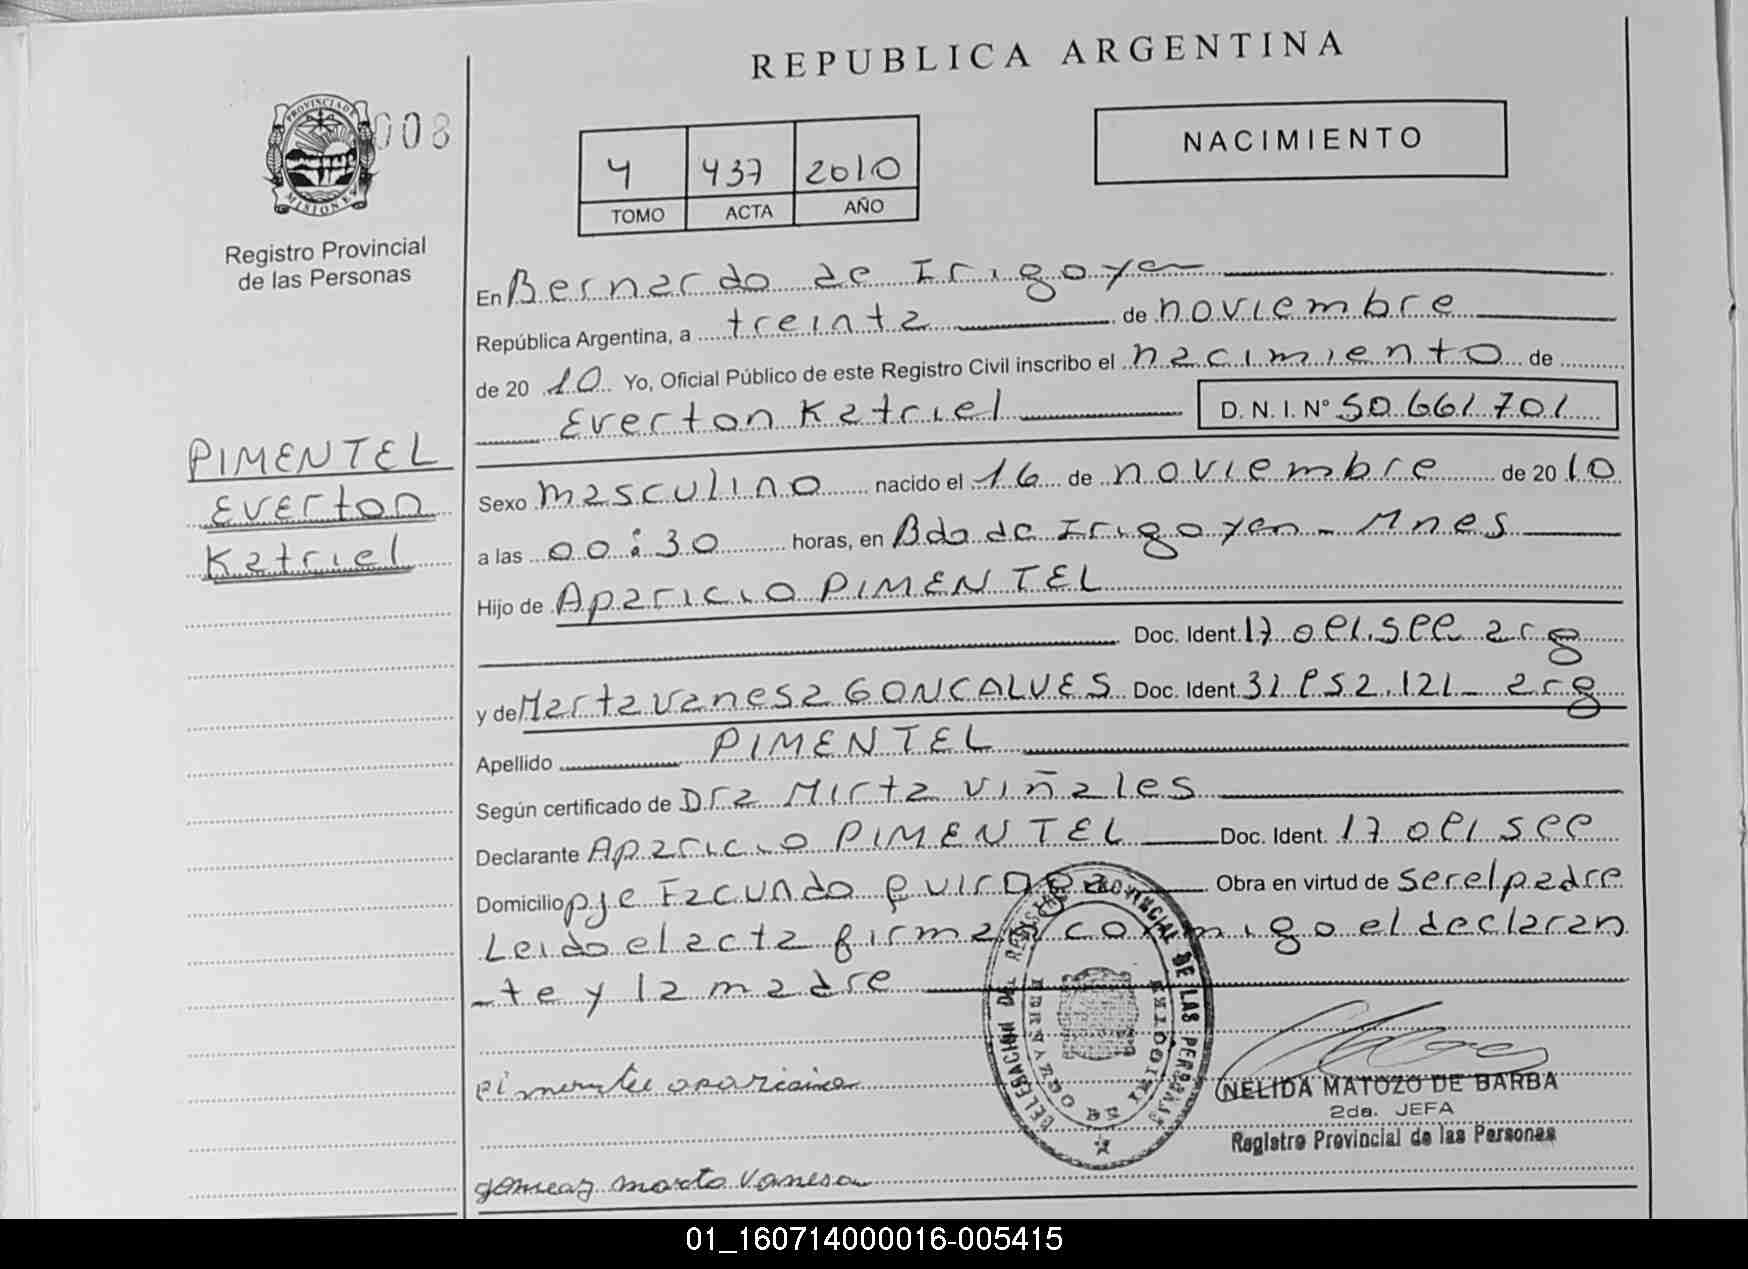 REPUBLICA ARGENTINA
PROVINCIA DE
MISIONES
008
Registro Provincial
de las Personas
4 437 2010
TOMO ACTA AÑO
NACIMIENTO
En Bernardo de Irigoyen
República Argentina, a treinta de noviembre
de 20 10 Yo, Oficial Público de este Registro Civil inscribo el nacimiento de
Everton Katriel D. N. I. Nº 50.661.701
PIMENTEL
Everton
Katriel
Sexo masculino nacido el 16 de noviembre de 2010
a las 00:30 horas, en Bdo de Irigoyen - Mnes
Hijo de Aparicio PIMENTEL
Doc. Ident. arg
y de Marta Vanesa GONCALVES Doc. Ident. arg
Apellido PIMENTEL
Según certificado de Dra Mirta Viñales
Declarante Aparicio PIMENTEL Doc. Ident.
Domicilio pje Facundo Quiroga Obra en virtud de ser el padre
Leido el acta firman conmigo el declaran
-te y la madre
DELEGACION DEL REGISTRO PROVINCIAL DE LAS PERSONAS
BERNARDO DE IRIGOYEN
NELIDA MATOZO DE BARBA
2da. JEFA
Registro Provincial de las Personas
marta vanesa
01_160714000016-005415